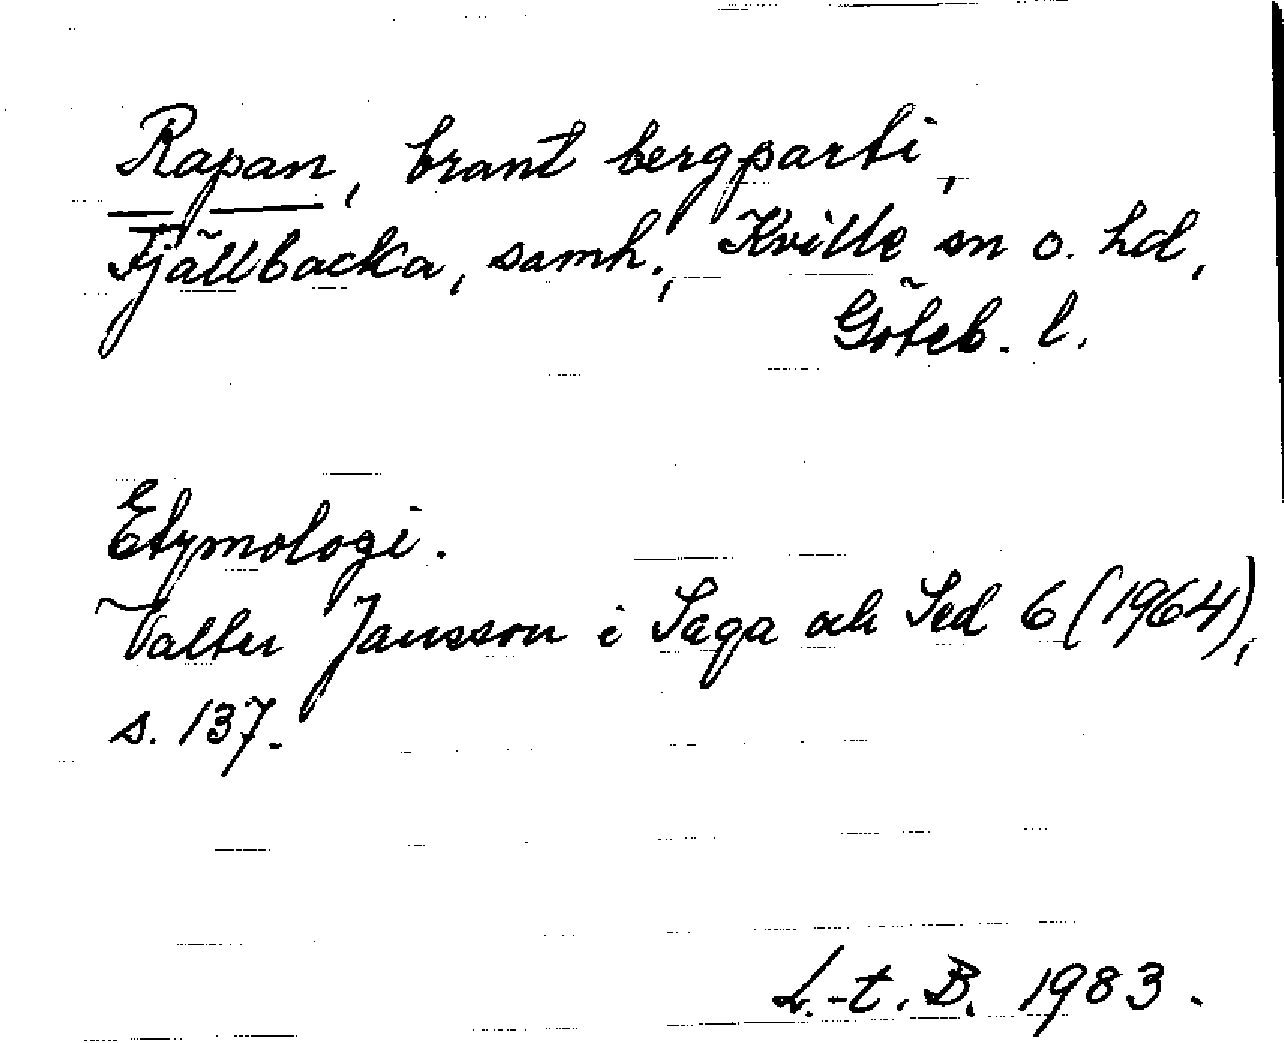 Rapan, brant bergparti,
Fjällbacka, samh., Kville sn o. hd,
Göteb. l.
Etymologi.
Valter Jansson i Saga och Sed 6 (1964),
s. 137.
L.-t. B. 1983.